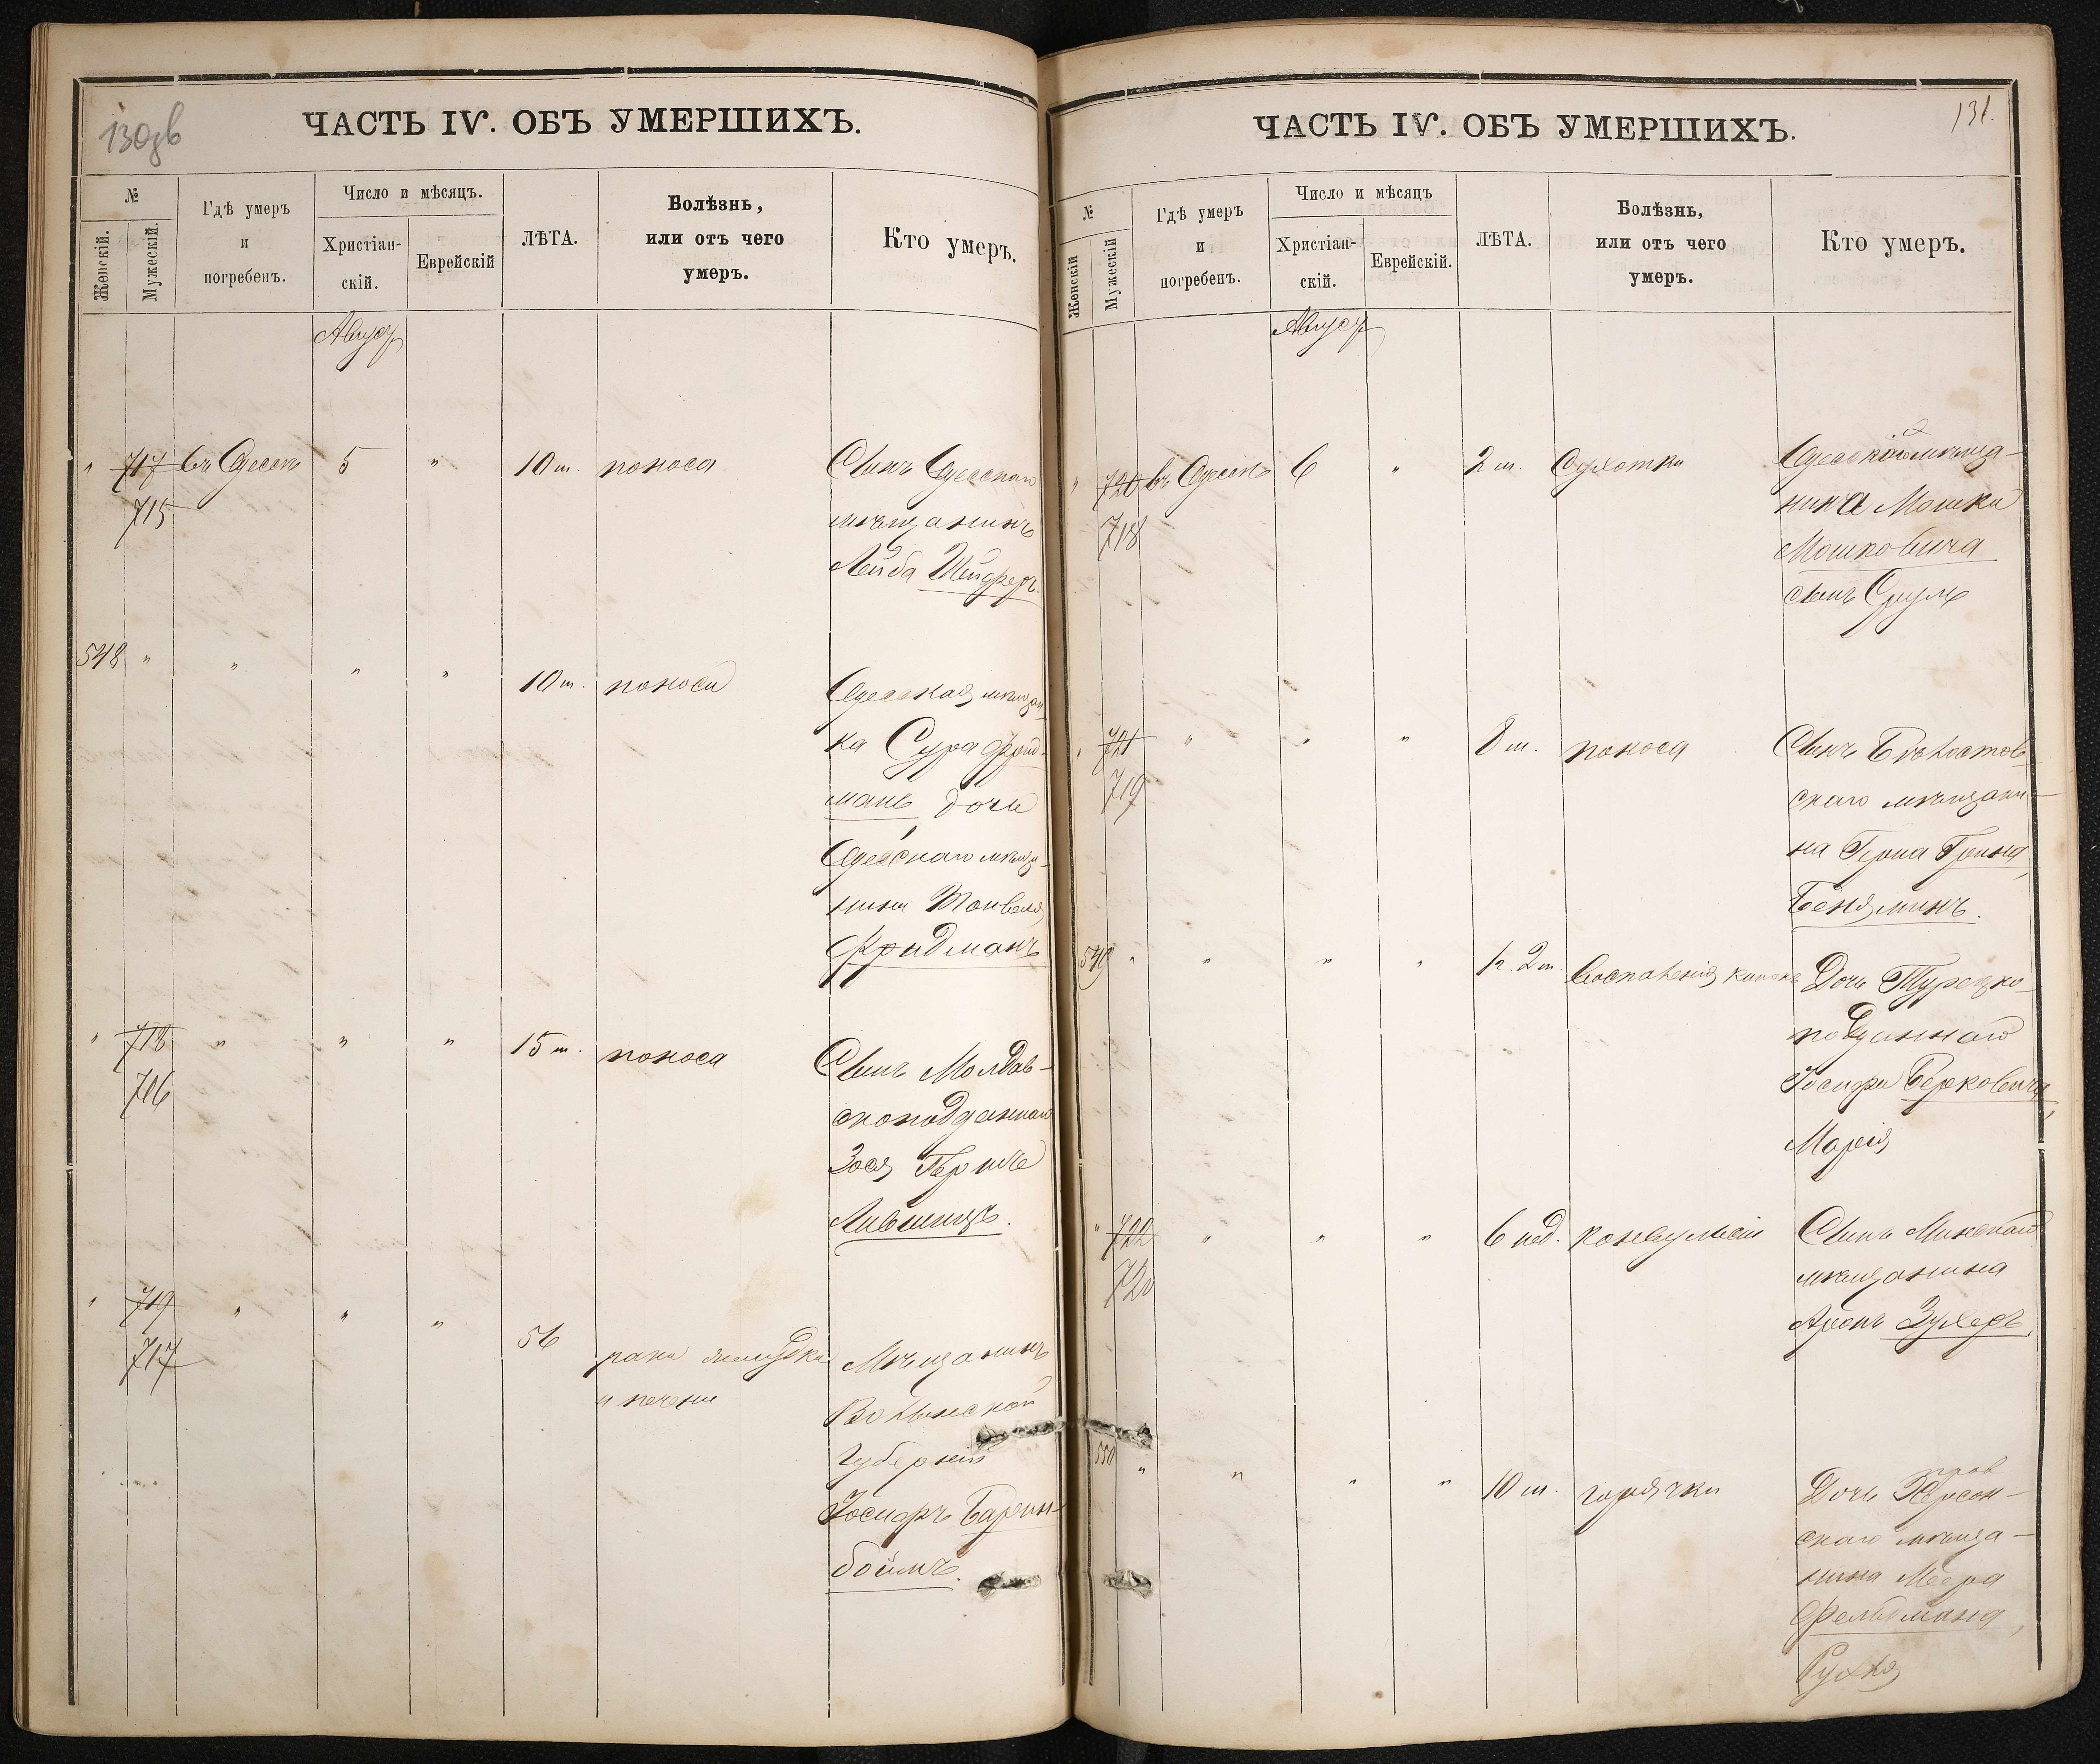 130 зв
ЧАСТЬ IV. ОБЪ УМЕРШИХЪ.
№
Женскій.
Мужескій.
Гдѣ умеръ
и
погребенъ.
Число и мѣсяцъ.
Христіан-
скій.
Еврейскій
ЛѢТА.
Болѣзнь,
или отъ чего
умеръ.
Кто умеръ.
Август
" 717 въ Одессѣ 5 " 10 м. поноса
715
Сынъ Одесскаго
мѣщанинъ
Лейба
548 " " " " 10 м. поноса
Одесская мѣщан-
ка Сура Фрид-
манъ дочь
Одесскаго мѣща-
нина
Фридманъ
" 718 " " " 15 м. поноса
716
Сынъ Молдав-
скоподданнаго
Зося Герше
Лившицъ.
" 719 " " " 56 рака желудка
717
и печени
Мѣщанинъ
Волынской
губерніи
Іосифъ Барин-
боймъ.
131.
ЧАСТЬ IV. ОБЪ УМЕРШИХЪ.
№
Женскій
Мужескій
Гдѣ умеръ
и
погребенъ.
Число и мѣсяцъ
Христіан-
скій.
Еврейскій.
ЛѢТА.
Болѣзнь,
или отъ чего
умеръ.
Кто умеръ.
Август
" 720 въ Одессѣ 6 " 2 м. Сухотки
718
мѣща-
нина Мошка
Мошковича
сынъ Сруль
" 721 " " " 8 м. поноса
719
Сынъ
скаго мѣщани-
на
Беняминъ.
549 " " " " 1 г. 2 м. воспаленія
Дочь Турецко-
подданнаго
Іосифа Берковича,
Марія
" 722 " " " 6 нед. конвульсіи
720
Сынъ Минскаго
мѣщанина
Аронъ Зухеръ,
550 " " " " 10 м. горячки
Дочь Херсон-
скаго мѣща-
нина Меера
Фельдмана,
Рухля